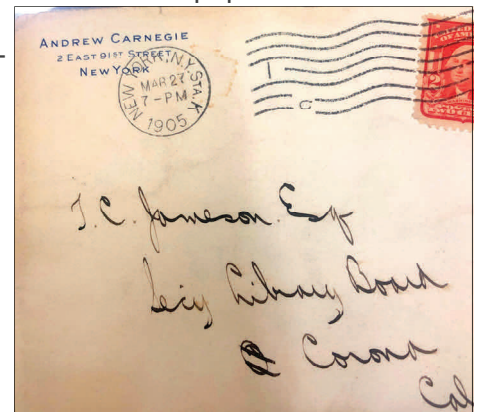 ANDREW CARNEGIE
2 EAST 91ST STREET
NEW YORK
NEW YORK, N.Y. STA. K
MAR 27
7-PM
1905
1
C
2
T. C. Jameson. Esq
Library Board
Corona
Cal